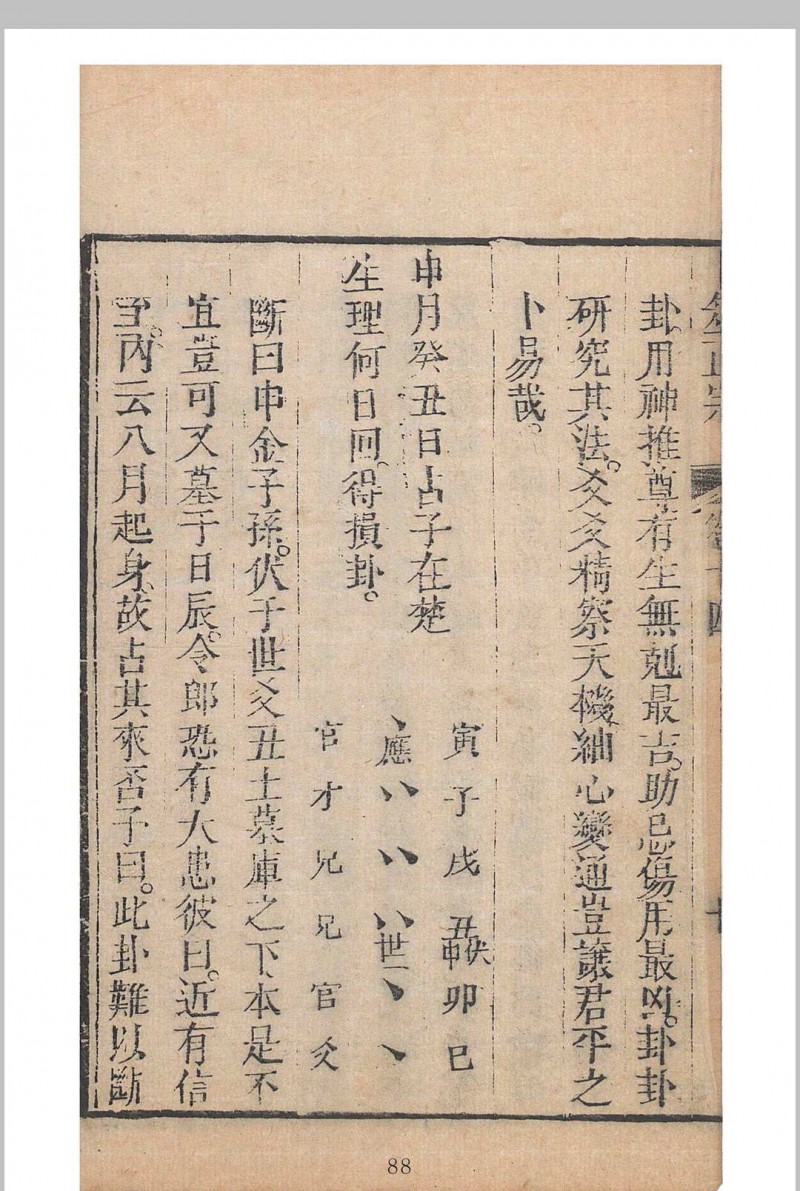 卜筮正宗 卷十四
卦用神推尊有生無剋最吉。助忌傷用最凶。卦卦
研究其法。爻爻精察天機。紬心變通豈讓君平之
卜易哉。
申月癸丑日占子在楚
生理何日回。得損卦。
寅子戌丑伏申卯巳
應世
官才兄兄官父
斷曰申金子孫。伏于世爻丑土墓庫之下本是不
宜豈可又墓于日辰。令郎恐有大患彼曰。近有信
至。內云八月起身。故占其來否予曰。此卦難以斷
88